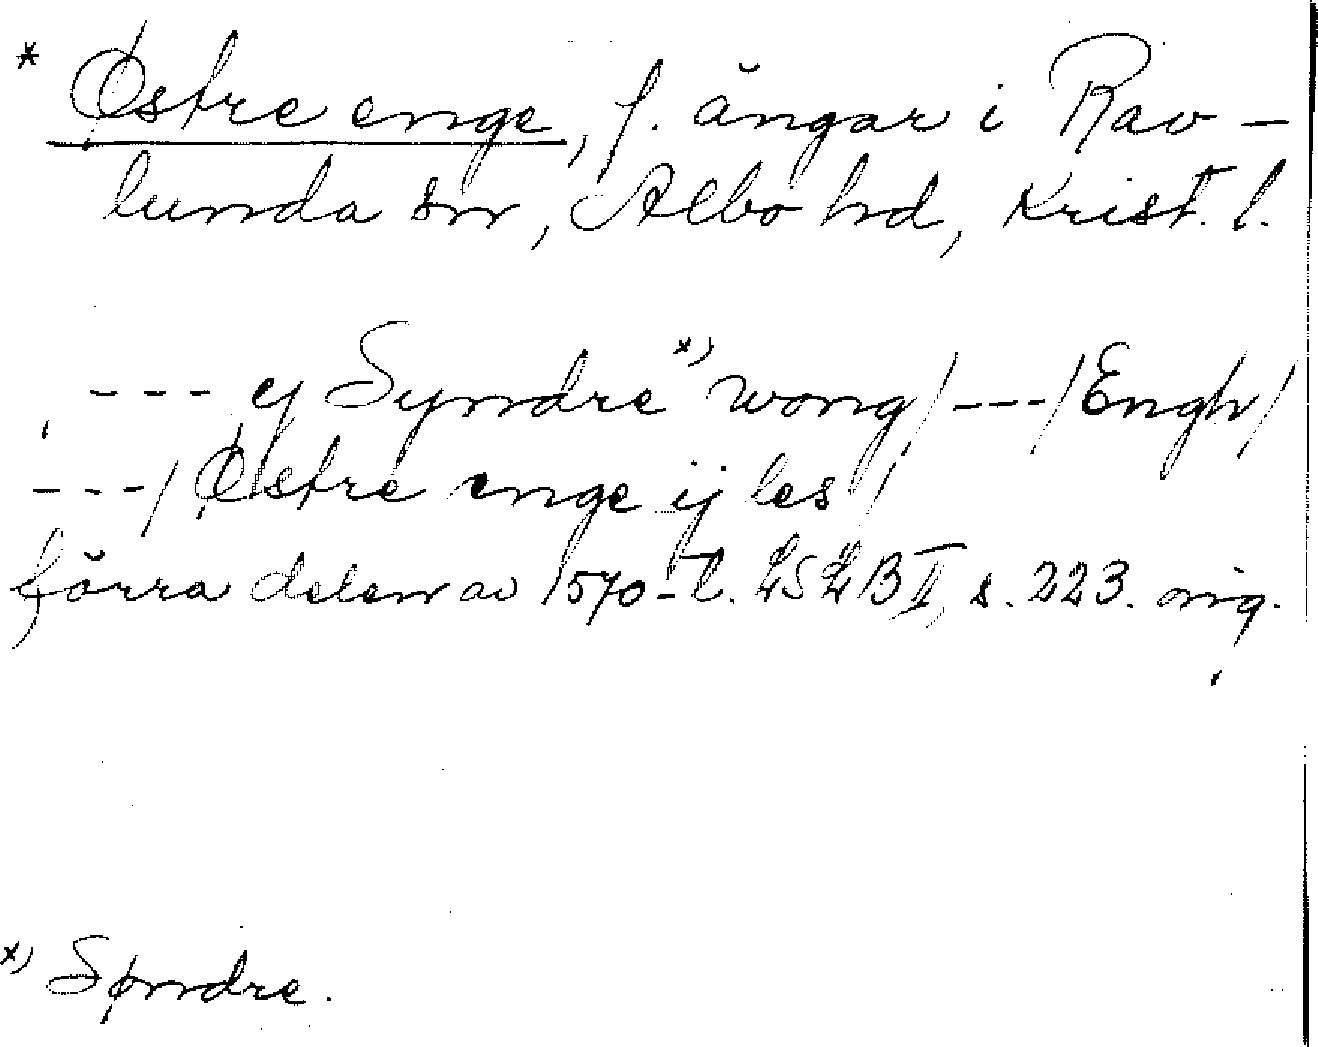 * Østre enge, f. ängar i Rav-
lunda sn, Albo hd, Krist. l.
--- ej Syndre x) wong/---/Engh/
---/Østre enge ij les/
förra delen av 1570-t. LSLB II, s. 223. orig.
x) Søndre.